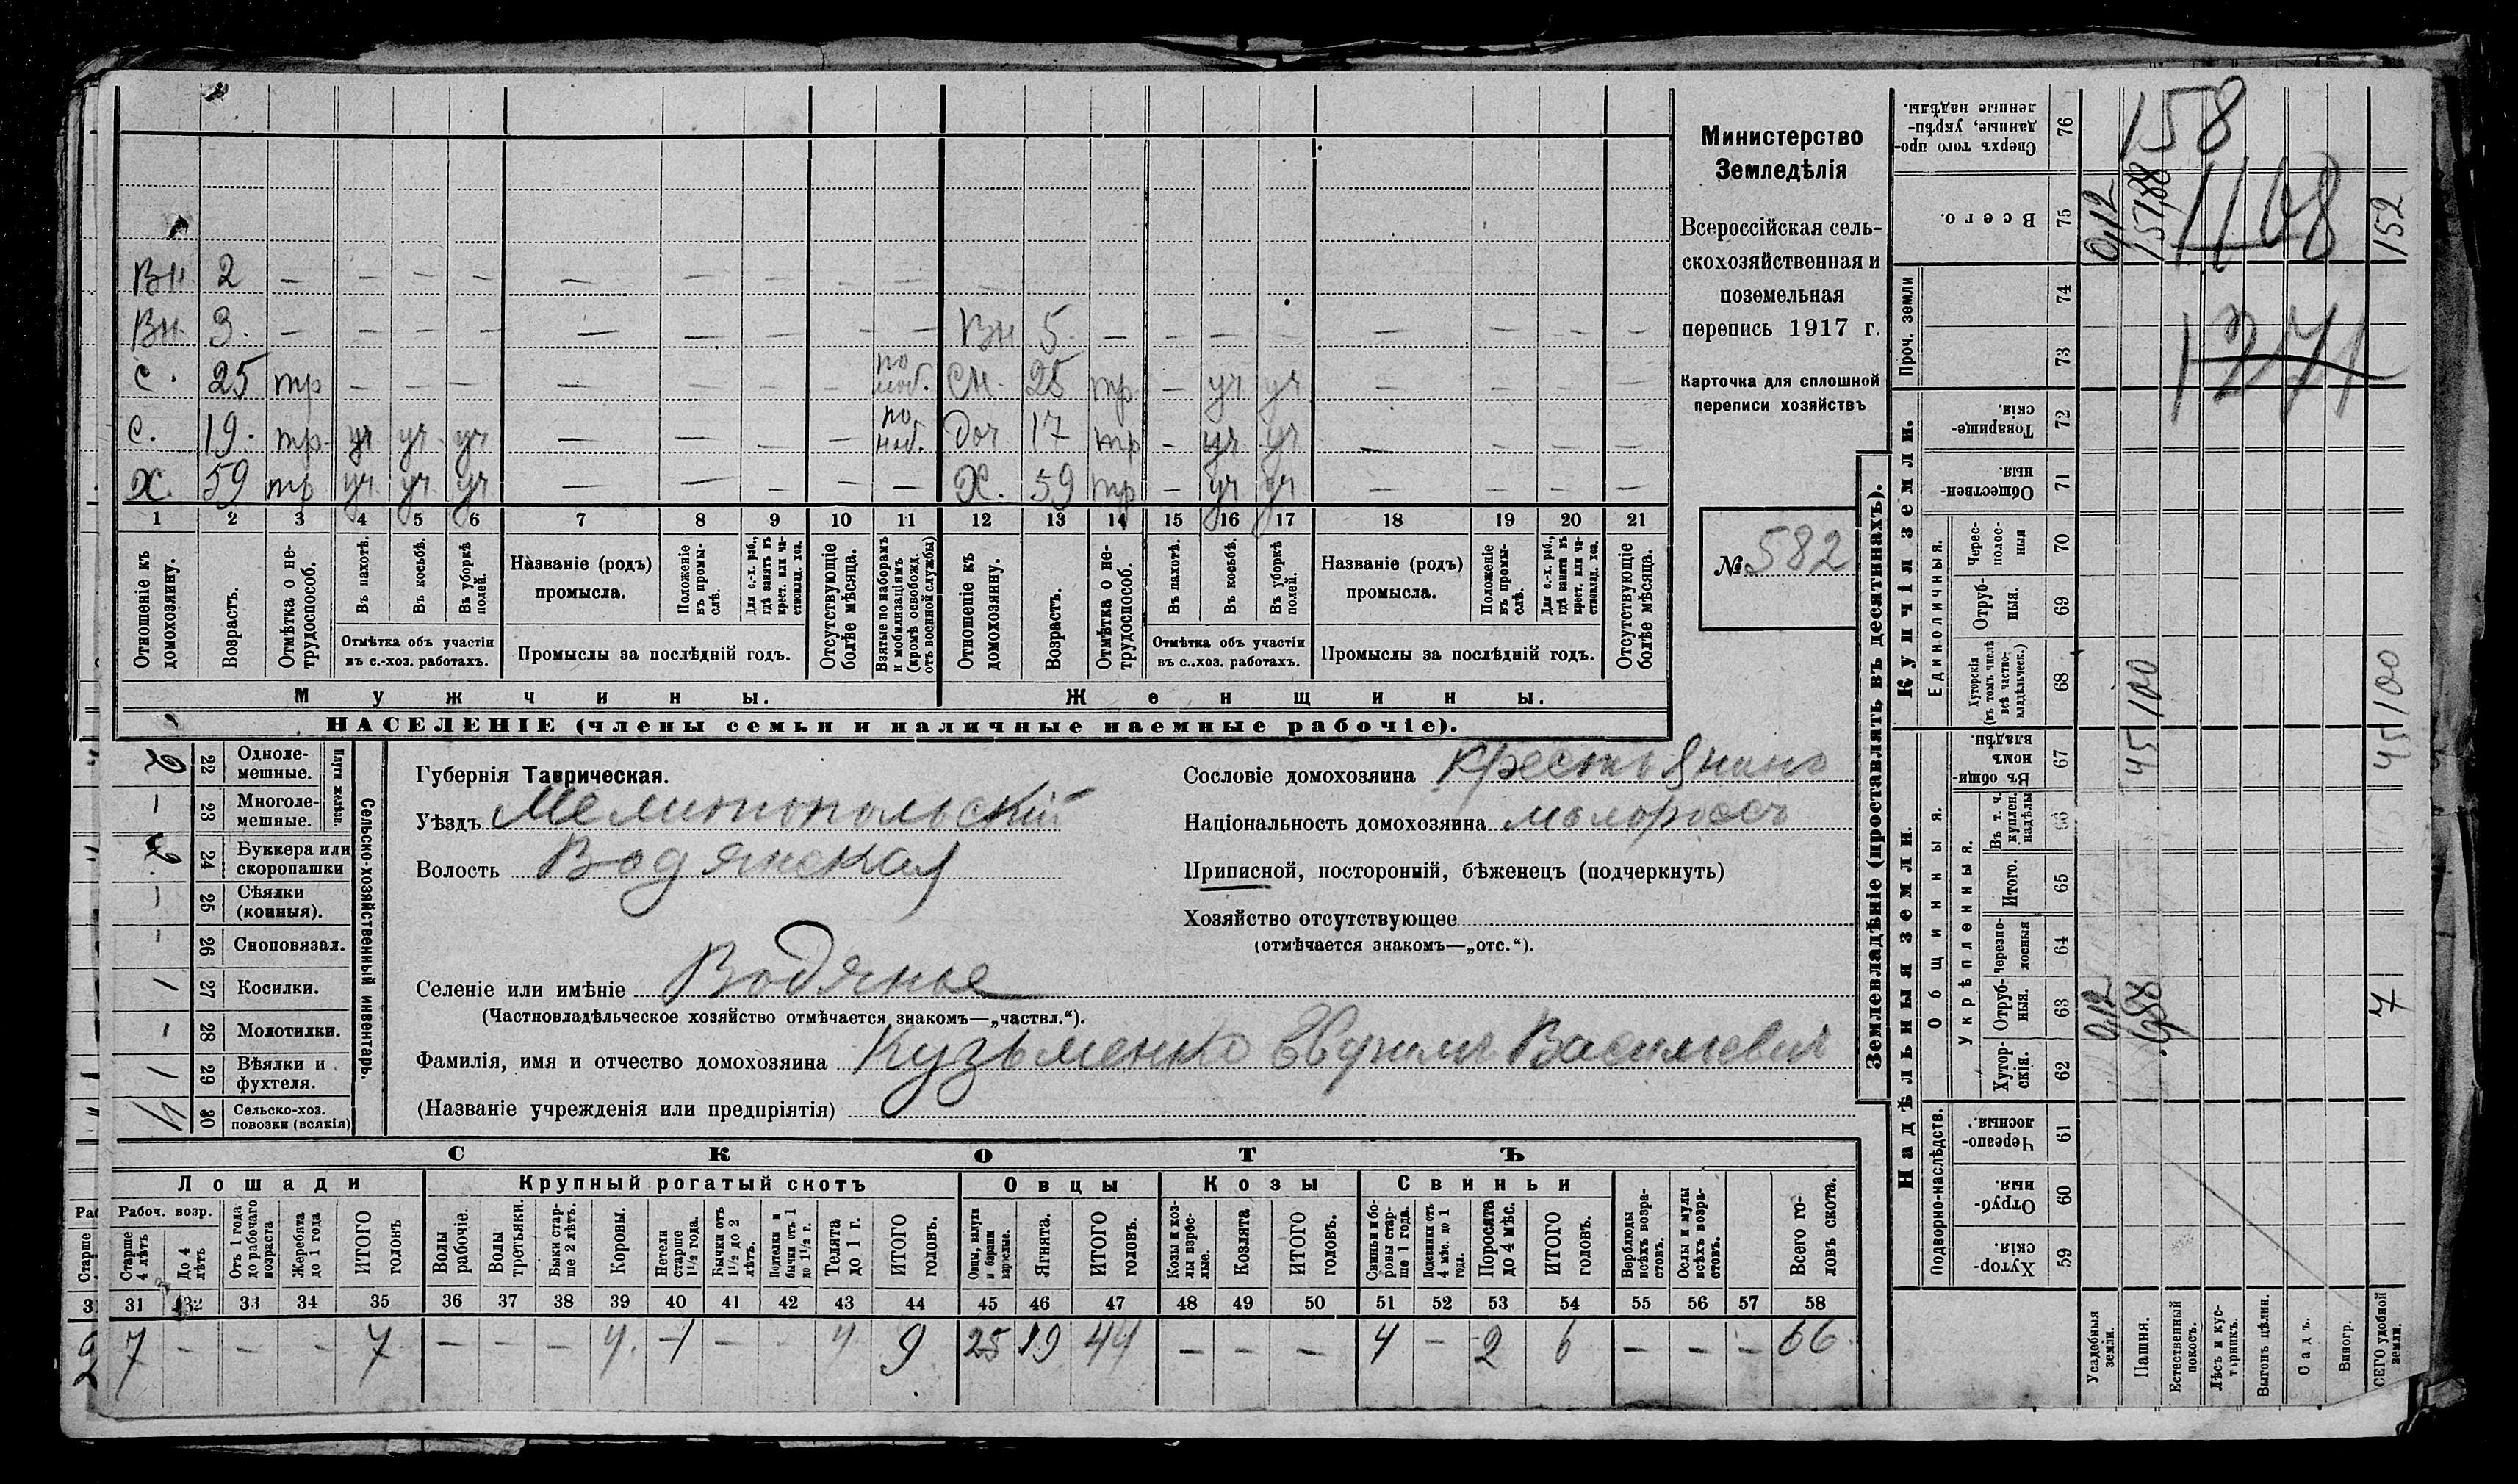 Вн. 2 — — — — — — — — —
Вн. 3. — — — — — — — — — Вн 5. — — — — — — — —
С. 25 тр — — — — — — — по моб. сн. 25 тр. — уч уч — — — —
С. 19. тр. уч. уч. уч — — — — по наб. доч 17 тр — уч. уч — — — —
Х. 59 тр уч. уч. уч — — — — — Х. 59 тр — уч уч. — — — —
1 2 3 4 5 6 7 8 9 10 11 12 13 14 15 16 17 18 19 20 21
Отношеніе къ домохозяину.
Возрастъ.
Отмѣтка о нетрудоспособ.
Въ пахотѣ.
Въ косьбѣ.
Въ уборкѣ полей.
Отмѣтка объ участіи въ с.-хоз. работахъ.
Названіе (родъ) промысла.
Положеніе въ промыслѣ.
Для с.-х. раб., гдѣ занятъ въ крест. или частновлад. хоз.
Промыслы за послѣдній годъ.
Отсутствующіе болѣе мѣсяца.
Взятые по наборамъ и мобилизаціямъ (кромѣ освобожд. отъ военной службы)
Отношеніе къ домохозяину.
Возрастъ.
Отмѣтка о нетрудоспособ.
Въ пахотѣ.
Въ косьбѣ.
Въ уборкѣ полей.
Отмѣтка объ участіи въ с.-хоз. работахъ.
Названіе (родъ) промысла.
Положеніе въ промыслѣ.
Для с.-х. раб., гдѣ занята въ крест. или частновлад. хоз.
Промыслы за послѣдній годъ.
Отсутствующіе болѣе мѣсяца.
Мужчины. Женщины.
НАСЕЛЕНІЕ (члены семьи и наличные наемные рабочіе).
Министерство
Земледѣлія
Всероссійская сель-
скохозяйственная и
поземельная
перепись 1917 г.
Карточка для сплошной
переписи хозяйствъ
№ 582
Сельско-хозяйственный инвентарь.
Плуги желѣзн.
2 22 Одноле-
мешные.
— 23 Многоле-
мешные.
2 24 Буккера или
скоропашки
— 25 Сѣялки
(конныя).
— 26 Сноповязал.
1 27 Косилки.
— 28 Молотилки.
1 29 Вѣялки и
фухтеля.
4 30 Сельско-хоз.
повозки (всякія)
Губернія Таврическая.
Уѣздъ Мелитопольскій
Волость Водянская
Селеніе или имѣніе Водяное
(Частновладѣльческое хозяйство отмѣчается знакомъ—„частвл.“).
Фамилія, имя и отчество домохозяина Кузьменко Васильевич
(Названіе учрежденія или предпріятія)
Сословіе домохозяина Крестьянинъ
Національность домохозяина малороссъ
Приписной, посторонній, бѣженецъ (подчеркнуть)
Хозяйство отсутствующее
(отмѣчается знакомъ—„отс.“).
СКОТЪ
Лошади Крупный рогатый скотъ Овцы Козы Свиньи
Рабоч. возр.
Старше 4 лѣтъ
До 4 лѣтъ
Отъ 1 года до рабочаго возраста
Жеребята до 1 года
ИТОГО головъ
Волы рабочіе.
Волы третьяки.
Быки старше 2 лѣтъ.
Коровы.
Нетели старше 1½ года.
Бычки отъ 1½ до 2 лѣтъ.
Подтелки и бычки отъ 1 до 1½ г.
Телята до 1 г.
ИТОГО головъ.
Овцы, валухи и бараны взрослые.
Ягнята.
ИТОГО головъ.
Козы и козлы взрослые.
Козлята
ИТОГО головъ.
Свиньи и боровы старше 1 года.
Подсвинки отъ 4 мѣс. до 1 года.
Поросята до 4 мѣс.
ИТОГО головъ.
Верблюды всѣхъ возрастовъ.
Ослы и мулы всѣхъ возрастовъ.
Всего головъ скота.
31 32 33 34 35 36 37 38 39 40 41 42 43 44 45 46 47 48 49 50 51 52 53 54 55 56 57 58
7 — — — 7 — — — 4. 1 — — 4 9 25 19 44 — — — 4 — 2 6 — — — 66
Землевладѣніе (проставлять въ десятинахъ).
Купчія земли.
Надѣльныя земли.
Сверхъ того проданные, укрѣпленные надѣлы. 76
Всего. 75
Проч. земли 74 73
Товарищескія. 72
Общественныя. 71
Единоличныя.
Чересполосныя 70
Отрубныя. 69
Хуторскія (въ томъ числѣ всѣ частновладѣльческ.) 68
Общинныя.
Въ общинномъ владѣн. 67
Укрѣпленныя.
Въ т. ч. куплен. надѣлы 66
Итого. 65
Черезполосныя 64
Отрубныя. 63
Хуторскія. 62
Подворно-наслѣдств.
Черезполосныя. 61
Отрубныя. 60
Хуторскія. 59
Усадебныя земли. 0,12 0,12
Пашня. 6,88 45/100 151,88
Естественный покосъ.
Лѣсъ и кустарникъ.
Выгонъ цѣлин.
Садъ.
Виногр.
ВСЕГО удобной земли. 7 45/100 152
158
1108
1271